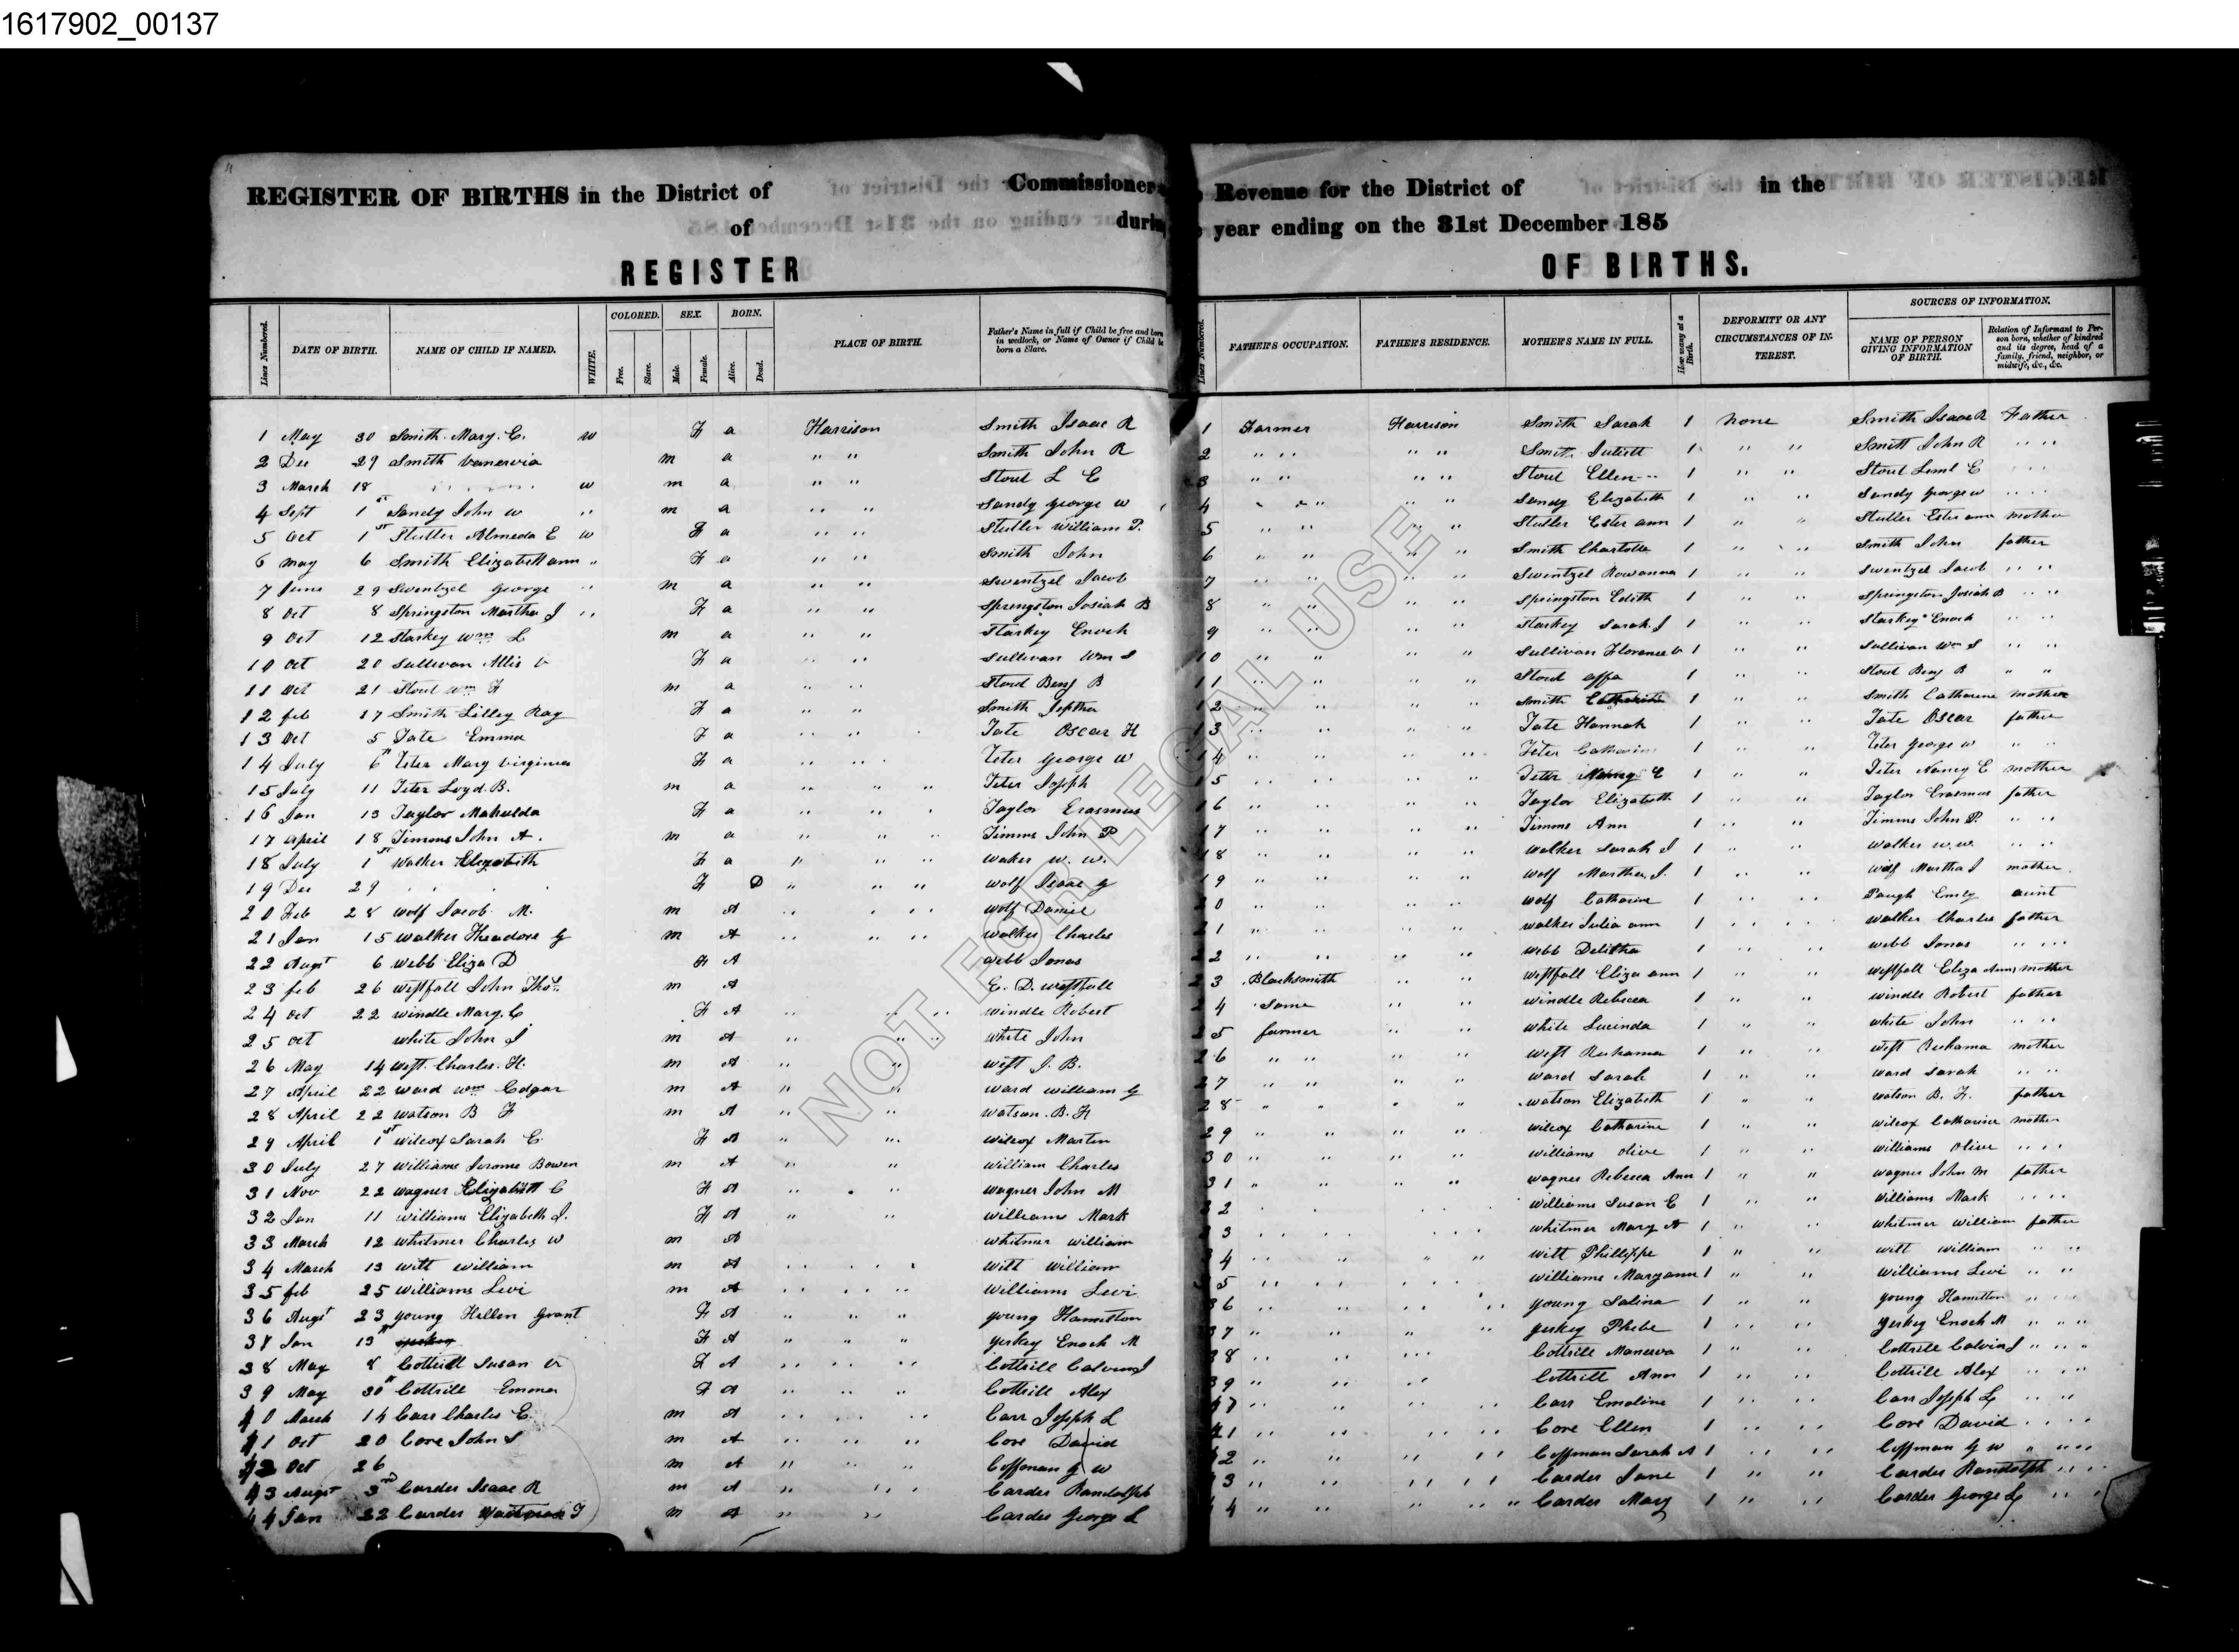 1617902_00137
REGISTER OF BIRTHS in the District of Commissioner
of during
REGISTER
Revenue for the District of in the
year ending on the 31st December 185
OF BIRTHS.
Lines Numbered. DATE OF BIRTH. NAME OF CHILD IF NAMED. WHITE. COLORED. Free. Slave. SEX. Male. Female. BORN. Alive. Dead. PLACE OF BIRTH. Father's Name in full if Child be free and born in wedlock, or Name of Owner if Child be born a Slave.
Lines Numbered. FATHER'S OCCUPATION. FATHER'S RESIDENCE. MOTHER'S NAME IN FULL. How many at a Birth. DEFORMITY OR ANY CIRCUMSTANCES OF INTEREST. SOURCES OF INFORMATION. NAME OF PERSON GIVING INFORMATION OF BIRTH. Relation of Informant to Person born, whether of kindred and its degree, head of a family, friend, neighbor, or midwife, &c., &c.
1 May 30 Smith Mary. E. w F a Harrison Smith Isaac R 1 Farmer Harrison Smith Sarah 1 None Smith Isaac R Father
2 Dec 29 Smith m a " " Smith John R 2 " " " " Smith 1 " " Smith John R " "
3 March 18 w m a " " Stout L E 3 " " " " Stout Ellen 1 " " Stout E
4 Sept 1st Sandy John W " m a " " Sandy George W 4 " " " " Sandy Elizabeth 1 " " Sandy George W " "
5 Oct 1st Stutler Almeda E w F a " " Stutler William P. 5 " " " " Stutler Ester ann 1 " " Stutler Ester ann mother
6 May 6 Smith Elizabeth ann " F a " " Smith John 6 " " " " Smith Charlotte 1 " " Smith John father
7 June 29 Swentzel George " m a " " Swentzel Jacob 7 " " " " Swentzel Rowanna 1 " " Swentzel Jacob " "
8 Oct 8 Springston Martha J " F a " " Springston Josiah B 8 " " " " Springston Edith 1 " " Springston Josiah B " "
9 Oct 12 Starkey Wm L m a " " Starkey Enoch 9 " " " " Starkey Sarah J 1 " " Starkey Enoch " "
10 Oct 20 Sullivan Allis V F a " " Sullivan Wm S 10 " " " " Sullivan Florence V 1 " " Sullivan Wm S " "
11 Oct 21 Stout Wm F m a " " Stout Benj B 11 " " " " Stout Affa 1 " " Stout Benj B " "
12 feb 17 Smith Lilley Ray F a " " Smith Jeptha 12 " " " " Smith Catharine 1 " " Smith Catharine mother
13 Oct 5 Tate Emma F a " " Tate Oscar H 13 " " " " Tate Hannah 1 " " Tate Oscar father
14 July 6th Teter Mary Virginia F a " " Teter George W 14 " " " " Teter Catharine 1 " " Teter George W " "
15 July 11 Teter Loyd. B. m a " " " Teter Joseph 15 " " " " Teter Nancy E 1 " " Teter Nancy E mother
16 Jan 13 Taylor Mahulda F a " " Taylor Erasmus 16 " " " " Taylor Elizabeth 1 " " Taylor Erasmus father
17 April 18 Timms John A. m a " " " Timms John P 17 " " " " Timms Ann 1 " " Timms John P. " "
18 July 1st Walker Elizabeth F a " " " Walker W. W. 18 " " " " Walker Sarah J 1 " " Walker W. W. " "
19 Dec 29 F D " " " Wolf Isaac G 19 " " " " Wolf Martha J. 1 " " Wolf Martha J mother
20 Feb 28 Wolf Jacob M. m A " " " Wolf Daniel 20 " " " " Wolf Catharine 1 " " Paugh Emily aunt
21 Jan 15 Walker Theadore G m A " " " Walker Charles 21 " " " " Walker Julia ann 1 Walker Charles father
22 Augt 6 Webb Eliza D F A Webb Jonas 22 " " " " Webb Delitha 1 " " Webb Jonas " "
23 feb 26 Westfall John Thos m A E. D. Westfall 23 Blacksmith " " Westfall Eliza ann 1 " " Westfall Eliza Ann mother
24 Oct 22 Windle Mary. C F A " " " Windle Robert 24 Same " " Windle Rebecca 1 " " Windle Robert father
25 Oct White John J m A " " " White John 25 farmer " " White Lucinda 1 " " White John " "
26 May 14 West. Charles. H. m A " " West J. B. 26 " " " " West Ruhama 1 " " West Ruhama mother
27 April 22 Ward Wm Edgar m A " " Ward William G 27 " " " " Ward Sarah 1 " " Ward Sarah " "
28 April 22 Watson B F m A " " Watson. B. F 28 " " " " Watson Elizabeth 1 " " Watson B. F. father
29 April 1st Wilcox Sarah E. F A " " Wilcox Martin 29 " " " " Wilcox Catharine 1 " " Wilcox Catharine mother
30 July 27 Williams Jerome Bowen m A " " William Charles 30 " " " " Williams Olive 1 " " Williams Olive " "
31 Nov 22 Wagner Elizabeth C F A " " Wagner John M 31 " " " " Wagner Rebecca Ann 1 " " Wagner John M father
32 Jan 11 Williams Elizabeth J. F A " " Williams Mark 32 Williams Susan E 1 " " Williams Mark " "
33 March 12 Whitmer Charles W m A Whitmer William 33 Whitmer Mary A 1 " " Whitmer William father
34 March 13 Witt William m A " " Witt William 34 " " Witt Phillippe 1 " " Witt William " "
35 feb 25 Williams Levi m A " " Williams Levi 35 " " Williams Maryann 1 " " Williams Levi " "
36 Augt 23 Young Hellen Grant F A " " " Young Hamilton 36 " " " " Young Salina 1 " " Young Hamilton " "
37 Jan 13th F A " " " Yerkey Enoch M 37 " " " " Yerkey Phebe 1 " " Yerkey Enoch M " "
38 May 8 Cottrill Susan V F A " " Cottrill Calvin J 38 " " " " Cottrill Manerva 1 " " Cottrill Calvin J " "
39 May 30th Cottrill Emma F A " " " Cottrill Alex 39 " " " Cottrill Ann 1 " " Cottrill Alex " "
40 March 14 Carr Charles E. m A " " Carr Joseph L 40 " " " " Carr Emeline 1 " " Carr Joseph L " "
41 Oct 20 Core John S m A " " " Core David 41 " " " " Core Ellen 1 " " Core David " "
42 Oct 26 m A " " " Coffman G W 42 " " " " Coffman Sarah A 1 " " Coffman G W " "
43 Augt 3rd Carder Isaac R m A " " Carder Randolph 43 " " " " Carder Jane 1 " " Carder Randolph " "
44 Jan 22 Carder m A " " Carder George L 44 " " " " Carder Mary 1 " " Carder George L " "
NOT FOR LEGAL USE